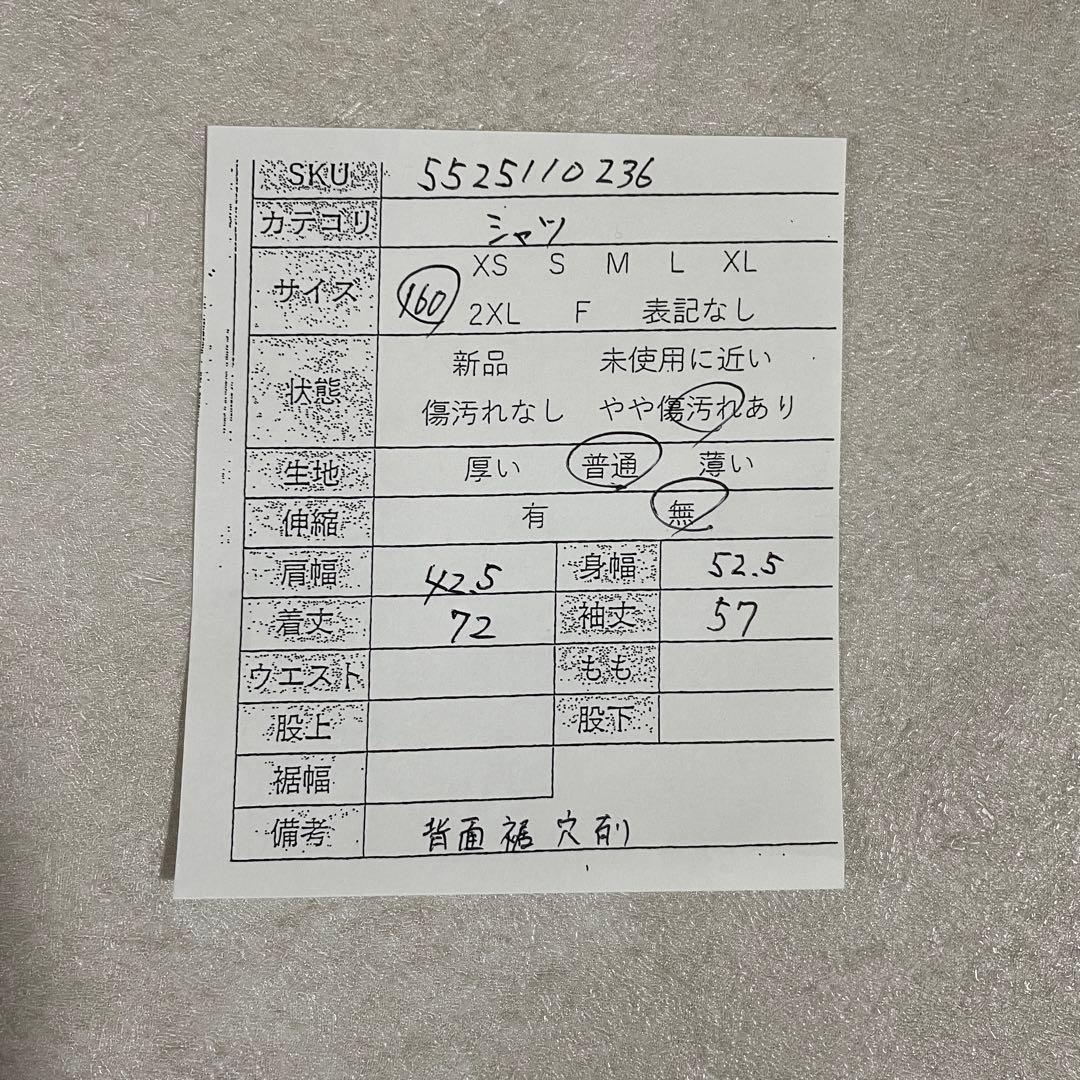 SKU 5525110236
カテゴリ シャツ
サイズ 160 XS S M L XL
2XL F 表記なし
状態 新品 未使用に近い
傷汚れなし やや傷汚れあり
生地 厚い 普通 薄い
伸縮 有 無
肩幅 42.5 身幅 52.5
着丈 72 袖丈 57
ウエスト もも
股上 股下
裾幅
備考 背面 裾 穴 有り